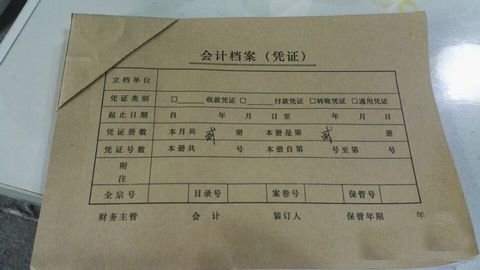 会计档案（凭证）
立档单位
凭证类别 □____收款凭证 □____付款凭证 □转账凭证 □通用凭证
起止日期 自 年 月 日至 年 月 日
凭证册数 本月共 贰 册 本册是第 贰 册
凭证号数 本册共 号 本册自第 号至第 号
附注
全宗号 目录号 案卷号 保管号
财务主管 会计 装订人 保管年限 年